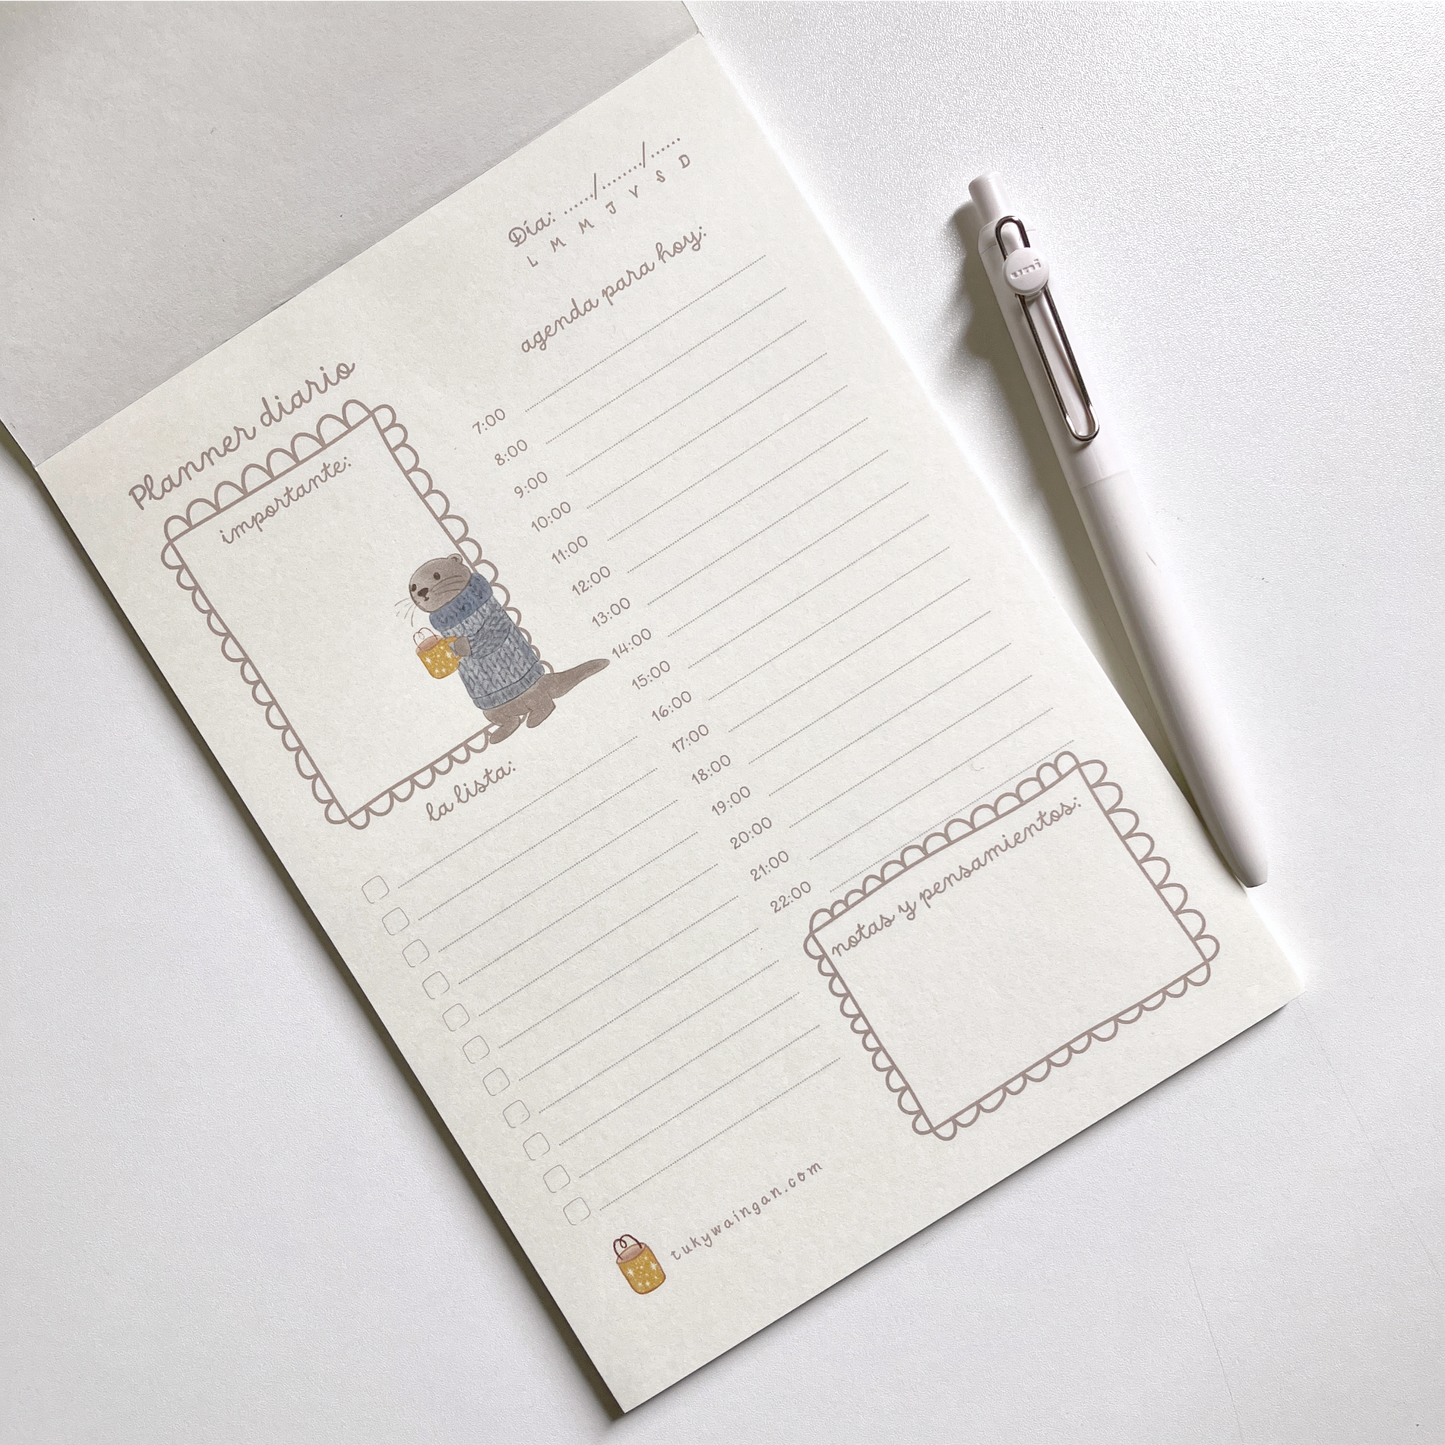 Día: ....../......../......
L M M J V S D
Planner diario
importante:
agenda para hoy:
7:00
8:00
9:00
10:00
11:00
12:00
13:00
14:00
15:00
16:00
17:00
18:00
19:00
20:00
21:00
22:00
la lista:
notas y pensamientos:
rukywaingan.com
uni